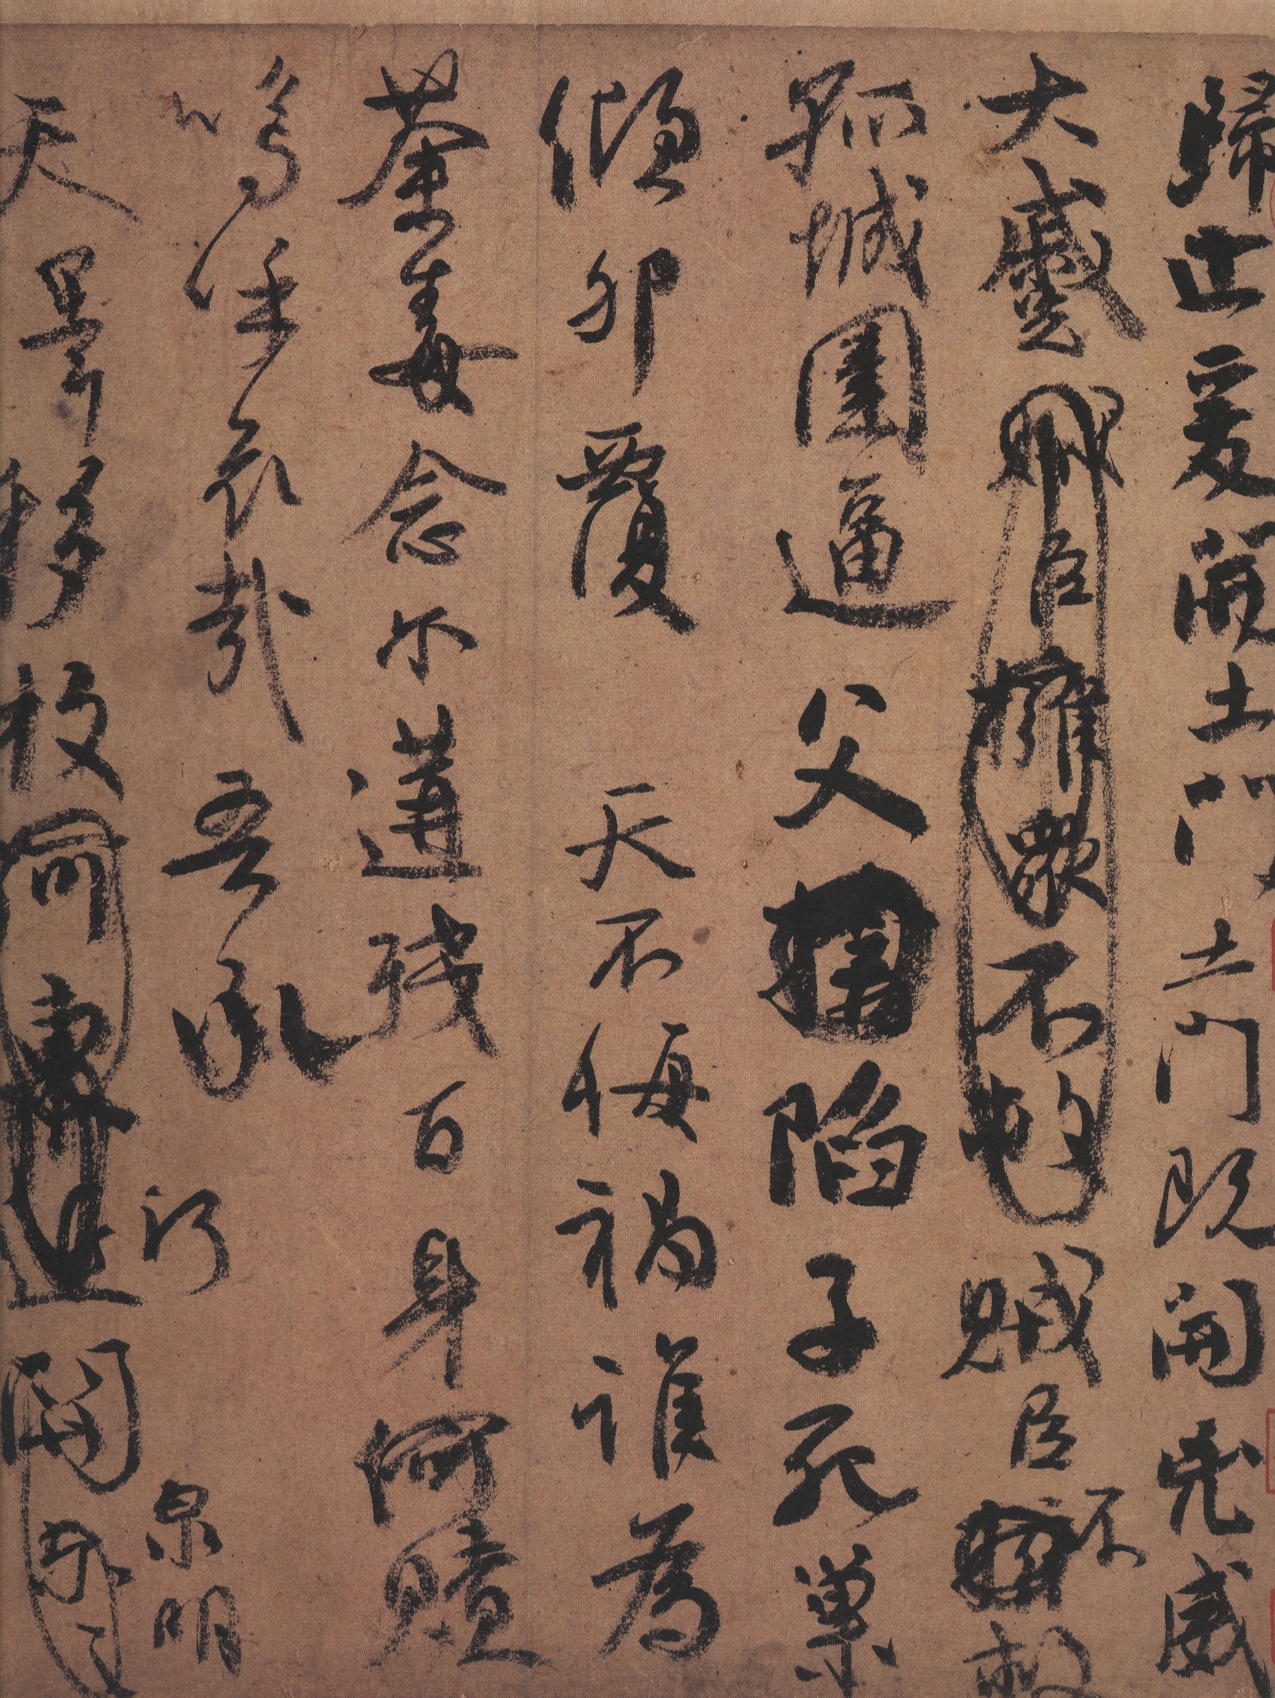 歸止爰開土門土門既開兇威
大蹙賊臣擁眾不救賊臣不救
孤城圍逼父陷子死巢
傾卵覆天不悔禍誰為
荼毒念爾遘殘百身何贖
嗚呼哀哉吾承
天澤移牧河關
近泉明